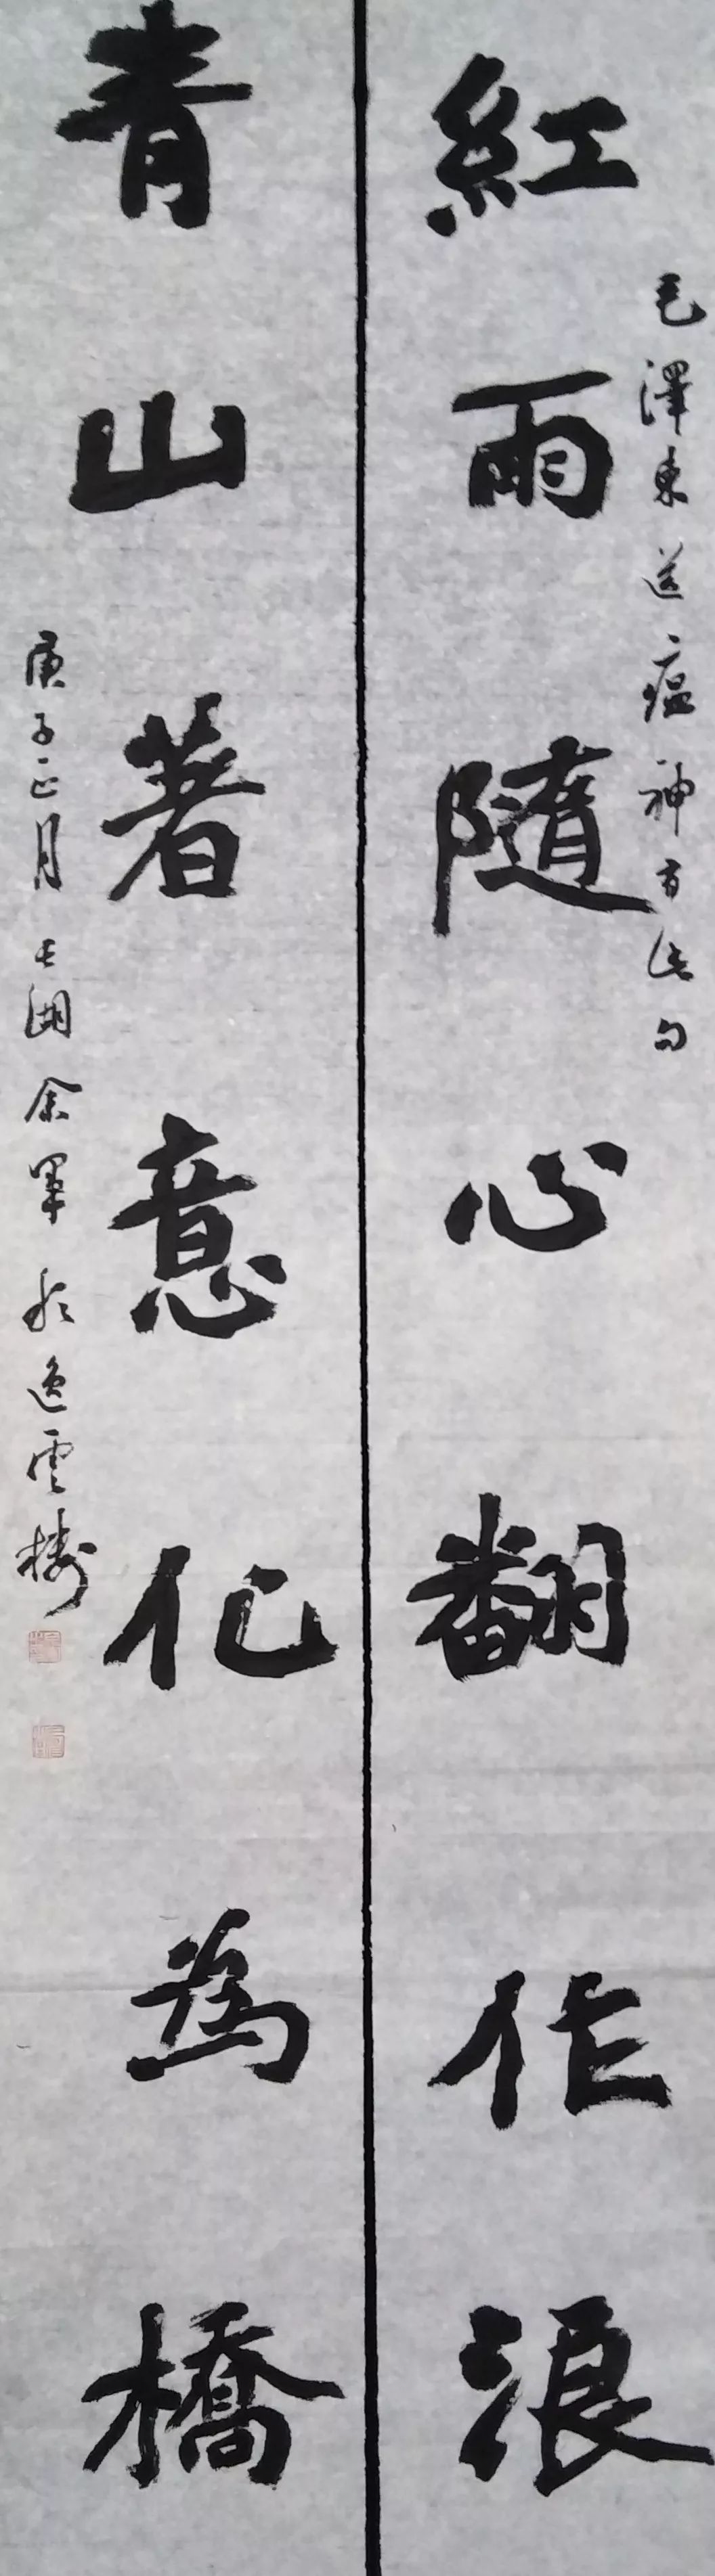 紅雨隨心翻作浪
毛澤東送瘟神有此句
青山著意化為橋
庚子正月 余軍於逸雲樓